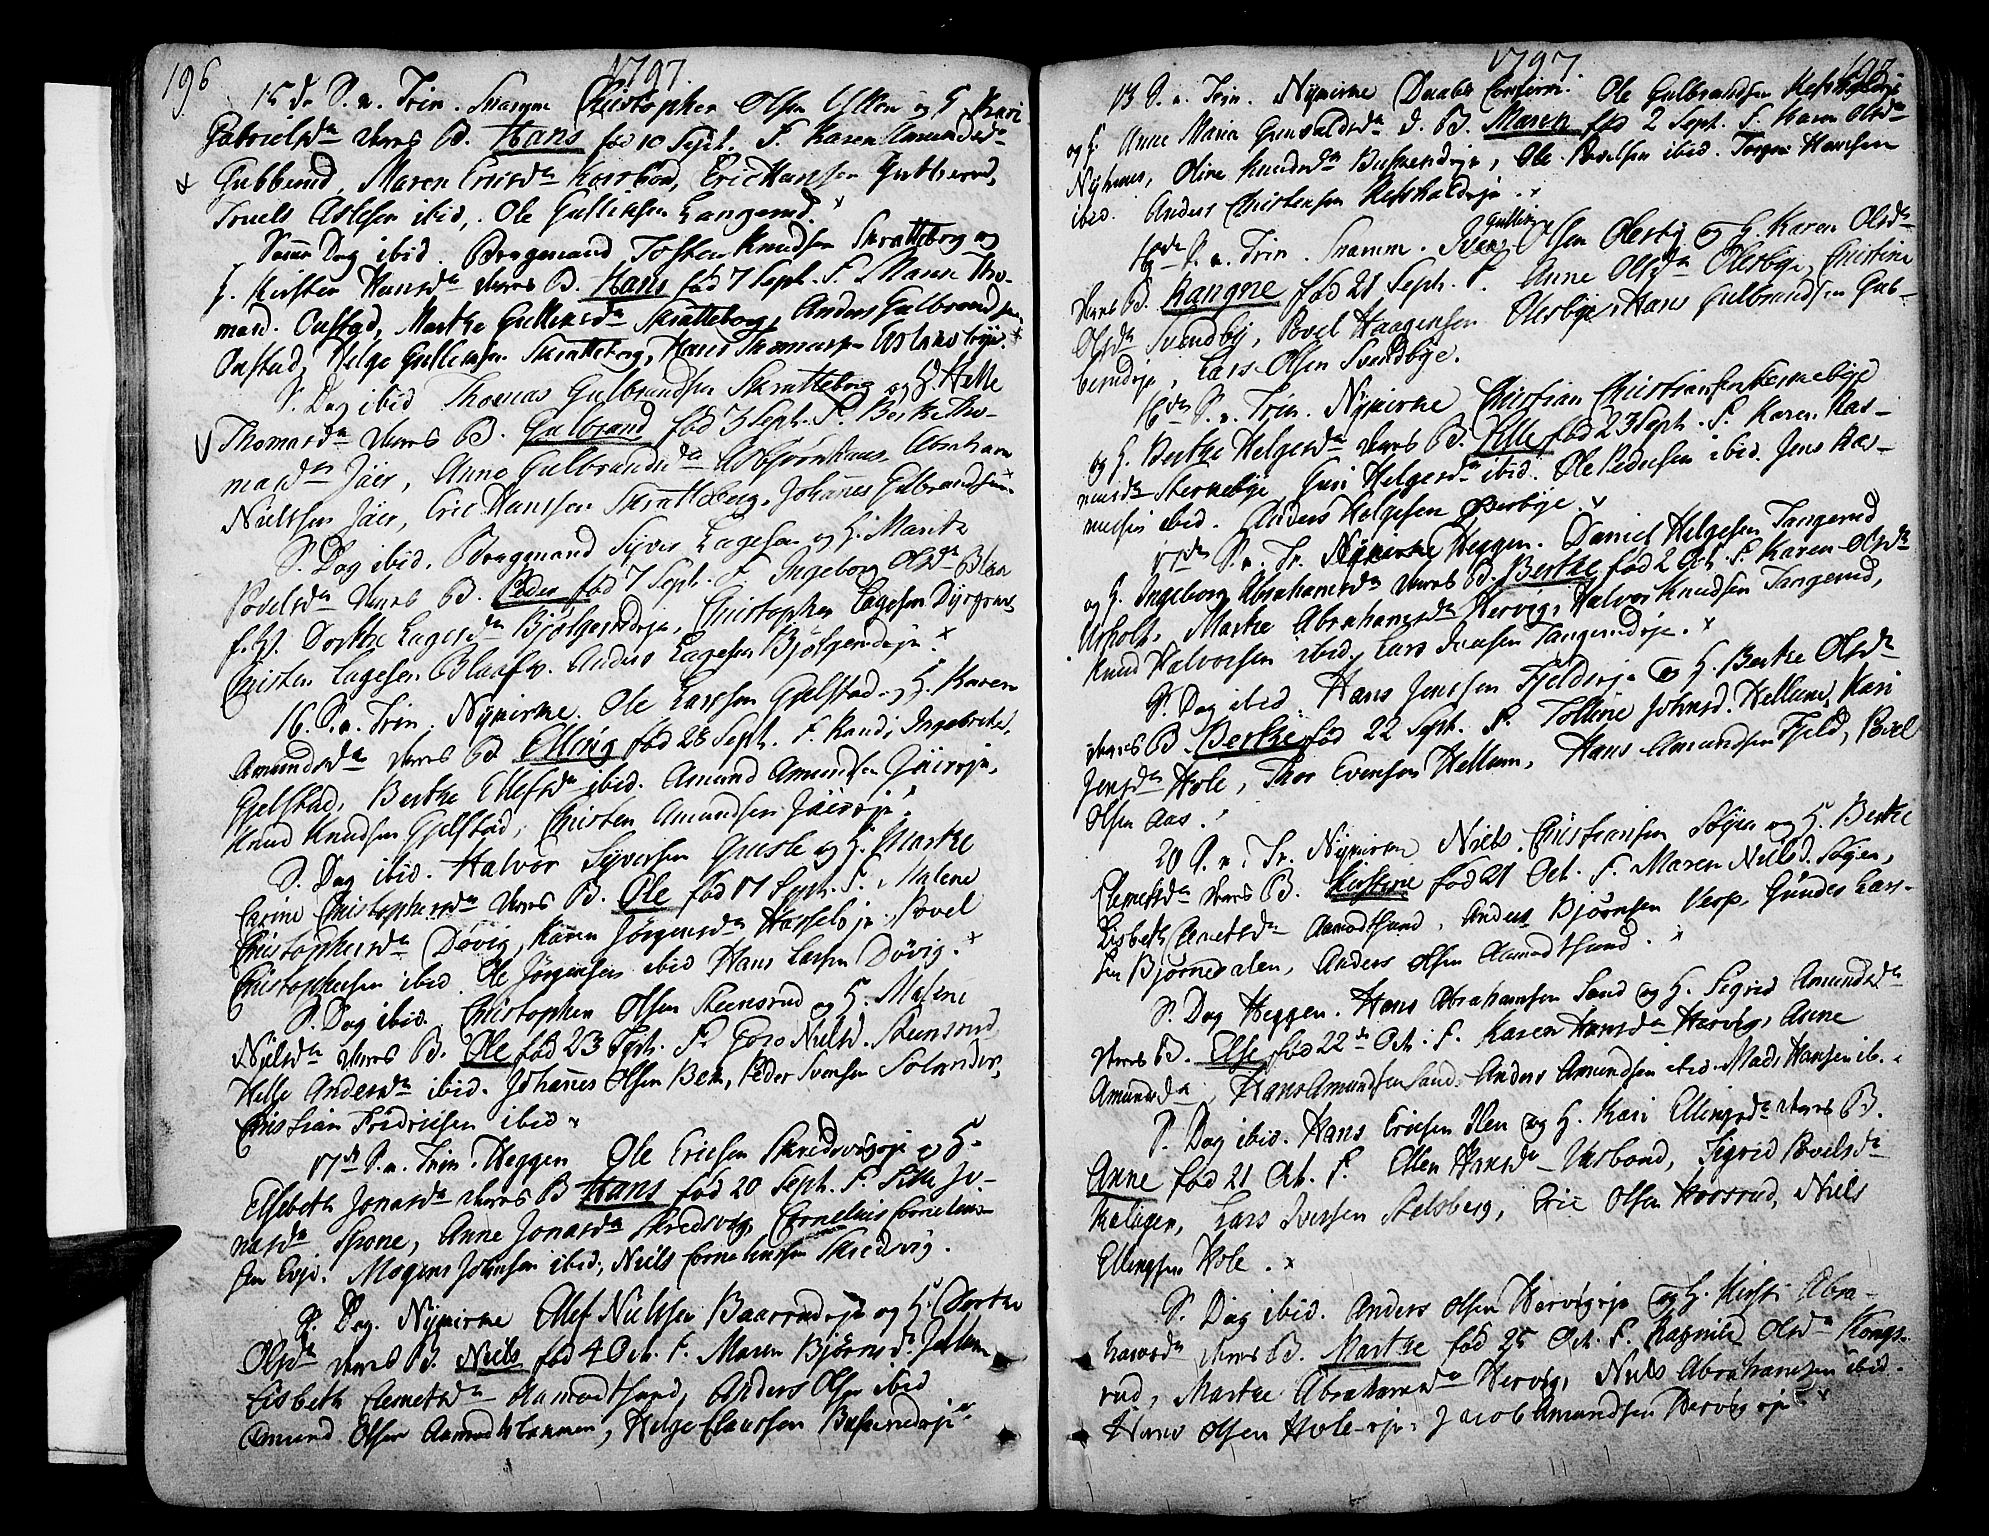 196
1797.
15 de S. a. Trin. Snarum Christopher Olsen Ulken og H. Kari
Gabrielsdr deres B. Hans fød 10 Sept. F. Karen Amundsdr
Gubberud, Maren Ericsdr Korsboe, Eric Hansen Gubberud,
Truels Aslesen ibid, Ole Gulliksen Langerud.
Samme Dag ibid. Brugmand Tosten Knudsen Skratteborg og
H. Kirsten Hansdr deres B. Hans fød 7 Sept. F. Maren Tho-
masd. Onstad, Marthe Gulliksdr Skratteborg, Anders Gulbrandsen
Onstad, Helge Gulliksen Skratteborg, Hans Thomasen Aslandseje.
S. Dag ibid Thomas Gulbrandsen Skratteborg og H. Helle
Thomasdr deres B. Gulbrand fød 3 Sept. F. Berthe Tho-
masdr Jåer, Anne Gulbrandsdr Asbjørnhuus Abraham
Nielssen Jåer, Eric Hanssen Skratteborg, Johannes Gulbrandsen
S. Dag ibid. Brugmand Syver Lagesen og H. Marith
Povelsdr deres B. Peder fød 7 Sept. F. Ingeborg Olsdr Blaa
f. V. Dorthe Lagesdr Bjølgerudeje, Christopher Lagesen Dyrgrav
Christen Lagesen Blaafv. Anders Lagesen Bjølgerudeje.
16. S. a. Trin. Nykirke. Ole Larssen Gjelstad og H. Karen
Amundsdr deres B. Elling fød 28 Sept. F. Randi Ingebrethsd.
Gjelstad, Berthe Ellefsdr ibid. Amund Amundsen Jåerseje,
Knud Knudsen Gjelstad, Christen Amundsen Jåerseje.
S. Dag ibid. Halvor Syversen Qvisle og H. Marthe
Carine Christophersdr deres B. Ole fød 17 Sept. F. Malene
Christophersdr Døvig, Karen Jørgensdr Hasseleje, Povel
Christophersen ibid. Ole Jørgensen ibid Hans Larsen Døvig.
S. Dag ibid. Christopher Olsen Steensrud og H. Malene
Nielsdr deres B. Ole fød 23 Sept. F. Goro Nielsd. Steensrud
Helle Andersdr ibid. Johannes Olsen Bek, Peder Svensen
Christian Fridricsen ibid
17de S. a. Trin. Heggen Ole Ericsen Skredsvigeje og H.
Elsebeth Jonasdr deres B Hans fød 20 Sept. F. Sille Jo-
nasdr Spone, Anne Jonasdr Skredsvig, Cornelius Cornelius-
sen Evje. Mogens Johnsen ibid, Niels Corneliussen Skredsvig.
S. Dag. Nykirke Ellef Nielssen Baasrudeje og H. Dorthe
Olsdr deres B. Niels fød 4 Oct. F. Maren Bjørnsd.
Lisbeth Clemetsdr Aamodtsund, Anders Olsen ibid
Amund Olsen Aamodt Lammen, Helge Clausen Buskerudeje
1797.
13 S. a. Trin. Nykirke Daabs Confirm. Ole Gulbrandsen
og H. Anne Maria Grensoldsdr d. B. Maren fød 2 Sept. F. Karen Olsdr
Nyhuus, Oline Knudsdr Buskerudeje, Ole Povelsen ibid. Torger Hansen
ibid. Anders Christensen
16de S. a. Trin. Snarum. Iver Gullik Olsen Olesby og H. Karen Olsdr
deres B. Rangne fød 21 Sept. F. Anne Olsdr Olesbye, Christine
Olsdr Svendby, Povel Haagensen Olesbye, Hans Gulbrandsen Gub-
berudeje, Lars Olsen Svendbye.
16de S. a. Trin. Nykirke Christian Christiansen Sterkebye
og H. Berthe Helgesdr deres B. Sille fød 23 Sept. F. Karen Ras-
musdr Sterkebye, Guri Helgesdr ibid. Ole Pedersen ibid. Jens Ras-
mussen ibid. Anders Helgesen
17de S. a. Tr. Nykirke Heggen. Daniel Helgesen Tangerud
og H. Ingeborg Abrahamsdr deres B. Berthe fød 2 Oct. F. Karen Olsdr
Urholt, Marthe Abrahamsdr Hervig, Halvor Knudsen Tangerud,
Knud Halvorsen ibid. Lars Iversen Tangerudeje.
S. Dag ibid. Hans Jenssen Fjeldeje og H. Berthe Olsdr
deres B. Berthe fød 22 Sept. F. Tolline Johnsd. Hellum, Kari
Jensdr Hole, Thor Evensen Hellum, Hans Amundsen Fjeld, Povel
Olsen Aas.
20 S. a. Tr. Nykirke Niels Christiansen Søgen og H. Berthe
Clemetsdr deres B. Kirstine fød 21 Oct. F. Maren Nielsd. Søgen,
Lisbeth Clemetsdr Aamodtsund, Anders Bjørnsen Verp, Gunder Lars-
sen Bjørnedalen, Anders Olsen Aamodtsund.
S. Dag Heggen. Hans Abrahamsen Sand og H. Sigrid Amundsdr
deres B. Else fød 22de Oct. F. Karen Hansdr Hervig, Anne
Amundsdr, Hans Amundsen Sand, Anders Amundsen ibid. Mads Hansen ib.
S. Dag ibid. Hans Ericsen Ilen og H. Kari Ellingsdr deres B.
Anne fød 21 Oct. F. Ellen Hansdr Vasbond, Sigrid Povelsdr
Lars Iversen Stelsberg, Eric Olsen Horsrud, Niels
Ellingsen Hole.
S. Dag ibid. Anders Olsen Hervigeje og H. Kirsti Abra-
hamsdr deres B. Marthe fød 25 Oct. F. Ragnild Olsdr Kongs-
rud, Marthe Abrahamsdr Hervig, Niels Abrahamsen ibid.
Hans Olsen Hole-eje, Jacob Amundsen Hervigeje.